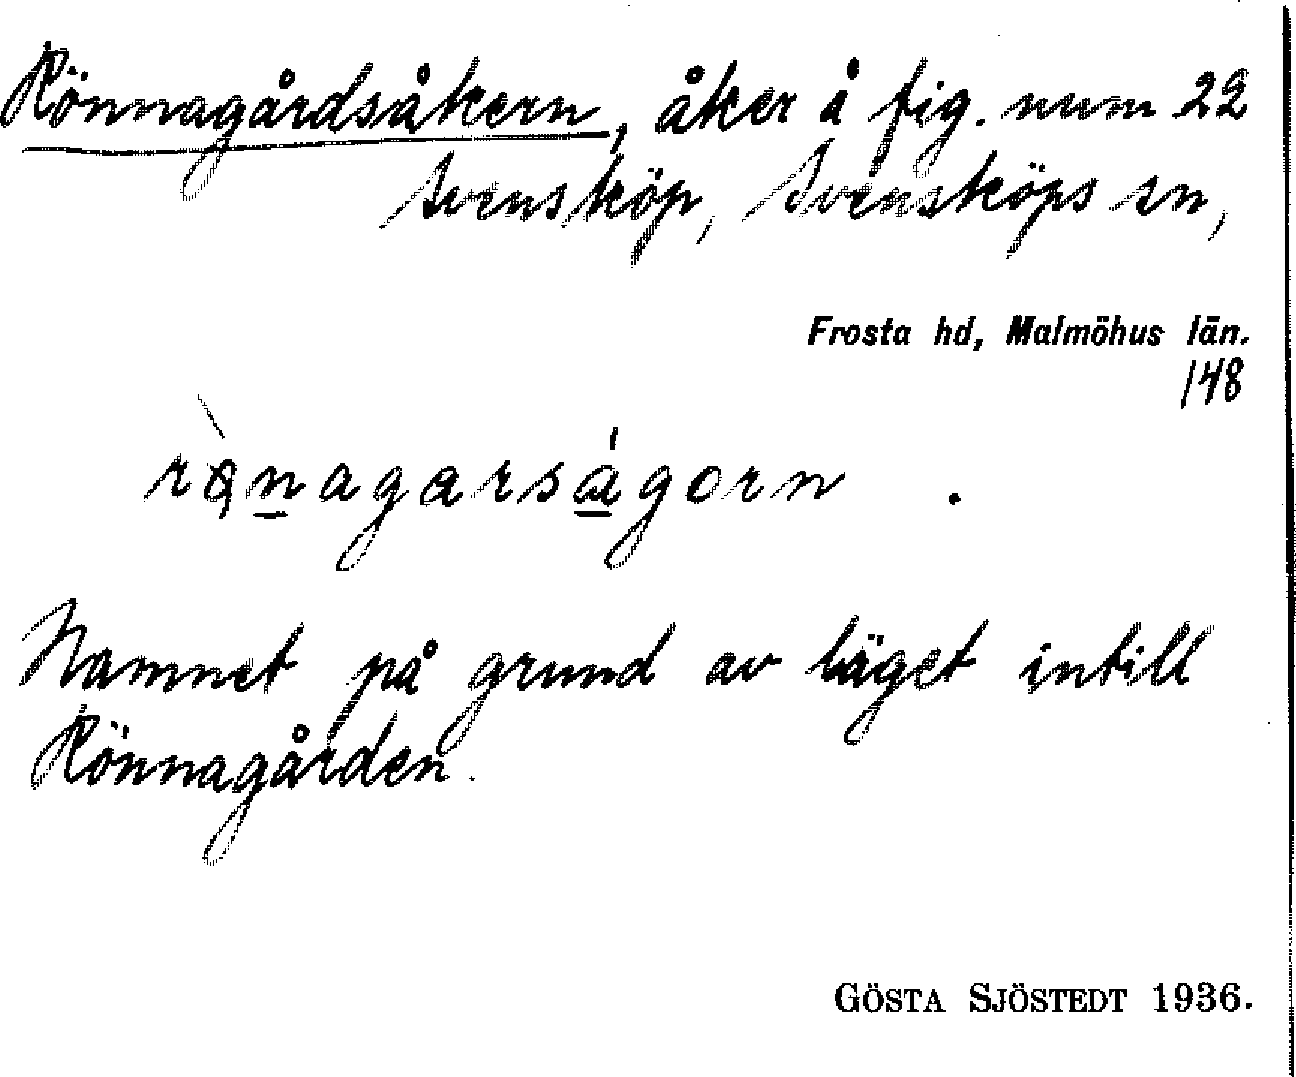 Rönnagårdsåkern, åker å fig. num 22
Svensköp, Svensköps sn,
Frosta hd, Malmöhus län.
148
rö̀nagarságorn .
Namnet på grund av läget intill
Rönnagården.
GÖSTA SJÖSTEDT 1936.